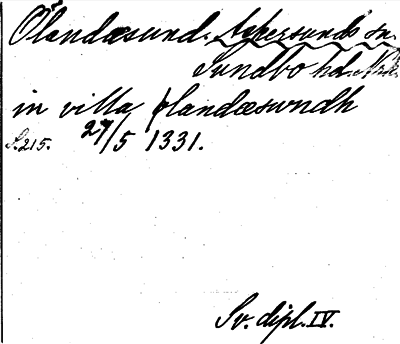 Ölandæsund. Askersunds sn.
Sundbo hd. När.
in villa ølandæswndh
S. 215. 27/5 1331.
Sv. dipl. IV.